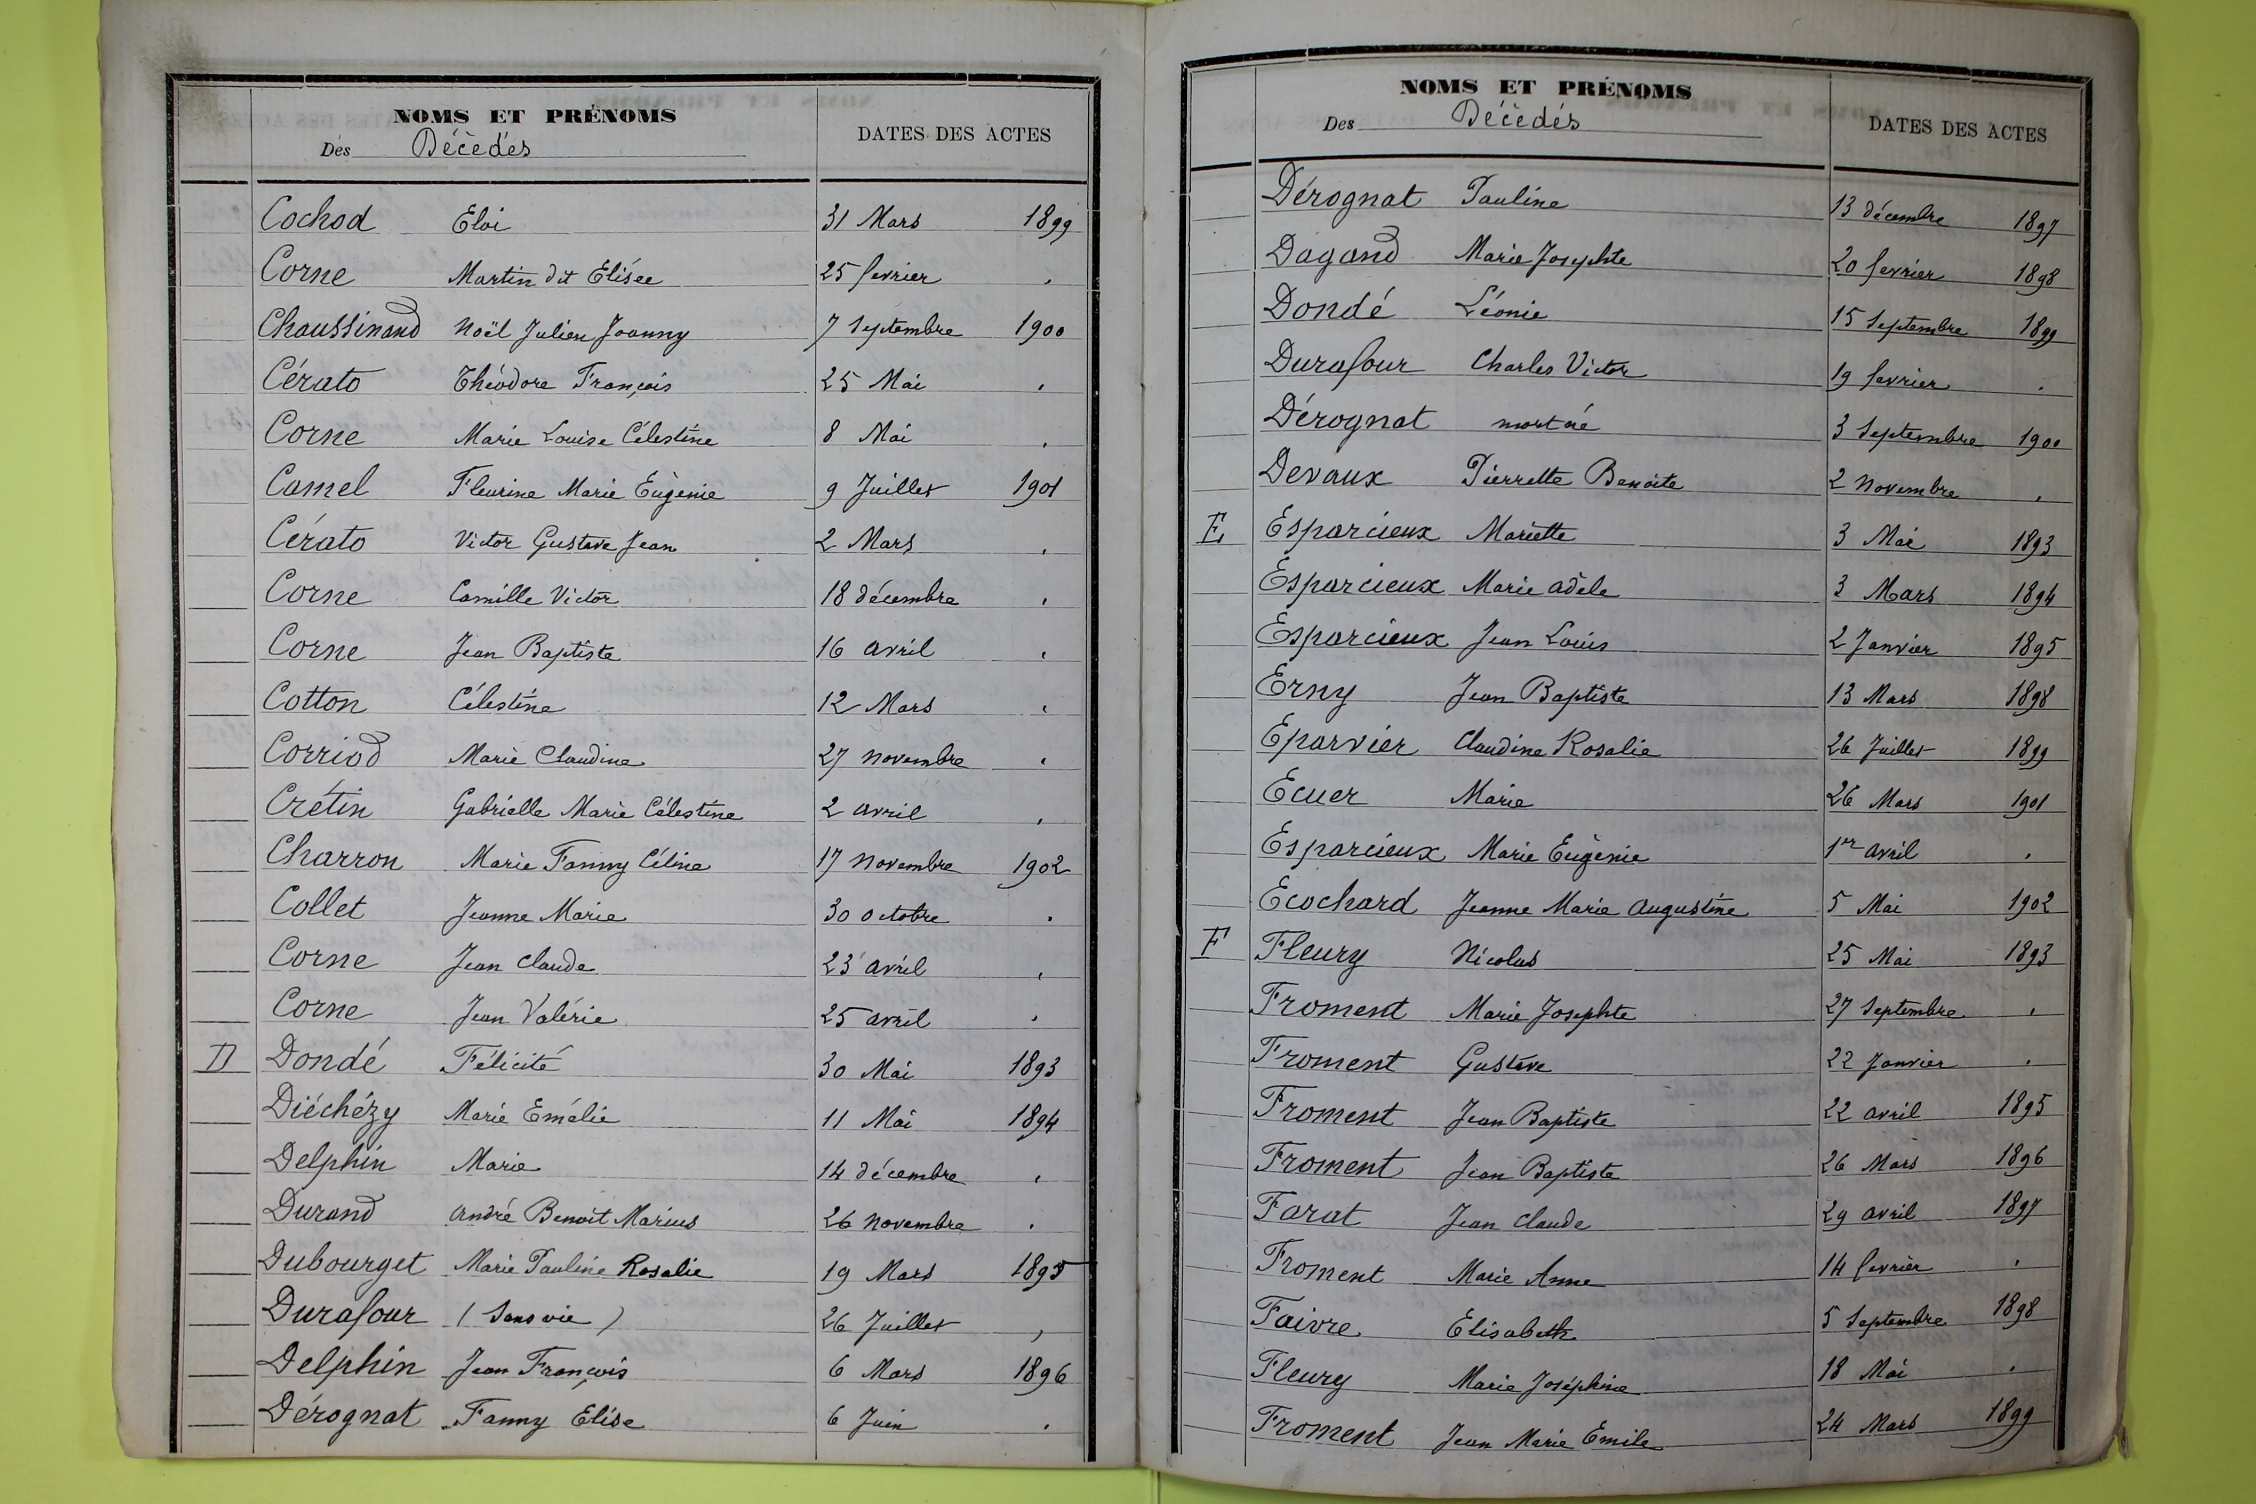 NOMS ET PRÉNOMS
Des Décédés
DATES DES ACTES
Cochod Eloi 31 Mars 1899
Corne Martin dit Elisée 25 fevrier .
Chaussinand Noël Julien Joanny 7 Septembre 1900
Cérato Théodore François 25 Mai .
Corne Marie Louise Célestine 8 Mai .
Camel Fleurine Marie Eugènie 9 Juillet 1901
Cérato Victor Gustave Jean 2 Mars .
Corne Camille Victor 18 décembre .
Corne Jean Baptiste 16 avril .
Cotton Célestine 12 Mars .
Corriod Marie Claudine 27 novembre .
Crétin Gabrielle Marie Célestine 2 avril .
Charron Marie Fanny Céline 17 Novembre 1902
Collet Jeanne Marie 30 octobre .
Corne Jean Claude 23 avril .
Corne Jean Valérie 25 avril .
D Dondé Félicité 30 Mai 1893
Diéchézy Marie Emélie 11 Mai 1894
Delphin Marie 14 décembre .
Durand André Benoît Marius 26 novembre .
Dubourget Marie Pauline Rosalie 19 Mars 1895
Durafour ( Sans vie ) 26 Juillet ,
Delphin Jean François 6 Mars 1896
Dérognat Fanny Elise 6 Juin .
NOMS ET PRÉNOMS
Des Décédés
DATES DES ACTES
Dérognat Pauline 13 décembre 1897
Dagand Marie Josephte 20 fevrier 1898
Dondé Léonie 15 Septembre 1899
Durafour Charles Victor 19 fevrier .
Dérognat mort né 3 Septembre 1900
Devaux Pierrette Benoite 2 Novembre .
E Esparcieux Mariette 3 Mai 1893
Esparcieux Marie adèle 3 Mars 1894
Esparcieux Jean Louis 2 Janvier 1895
Erny Jean Baptiste 13 Mars 1898
Eparvier Claudine Rosalie 26 Juillet 1899
Ecuer Marie 26 Mars 1901
Esparcieux Marie Eugènie 1er avril .
Ecochard Jeanne Marie Augustine 5 Mai 1902
F Fleury Nicolas 25 Mai 1893
Froment Marie Josephte 27 Septembre .
Froment Gustave 22 Janvier .
Froment Jean Baptiste 22 avril 1895
Froment Jean Baptiste 26 Mars 1896
Farat Jean Claude 29 avril 1897
Froment Marie Anne 14 fevrier .
Faivre Elisabeth 5 Septembre 1898
Fleury Marie Joséphine 18 Mai .
Froment Jean Marie Emile 24 Mars 1899